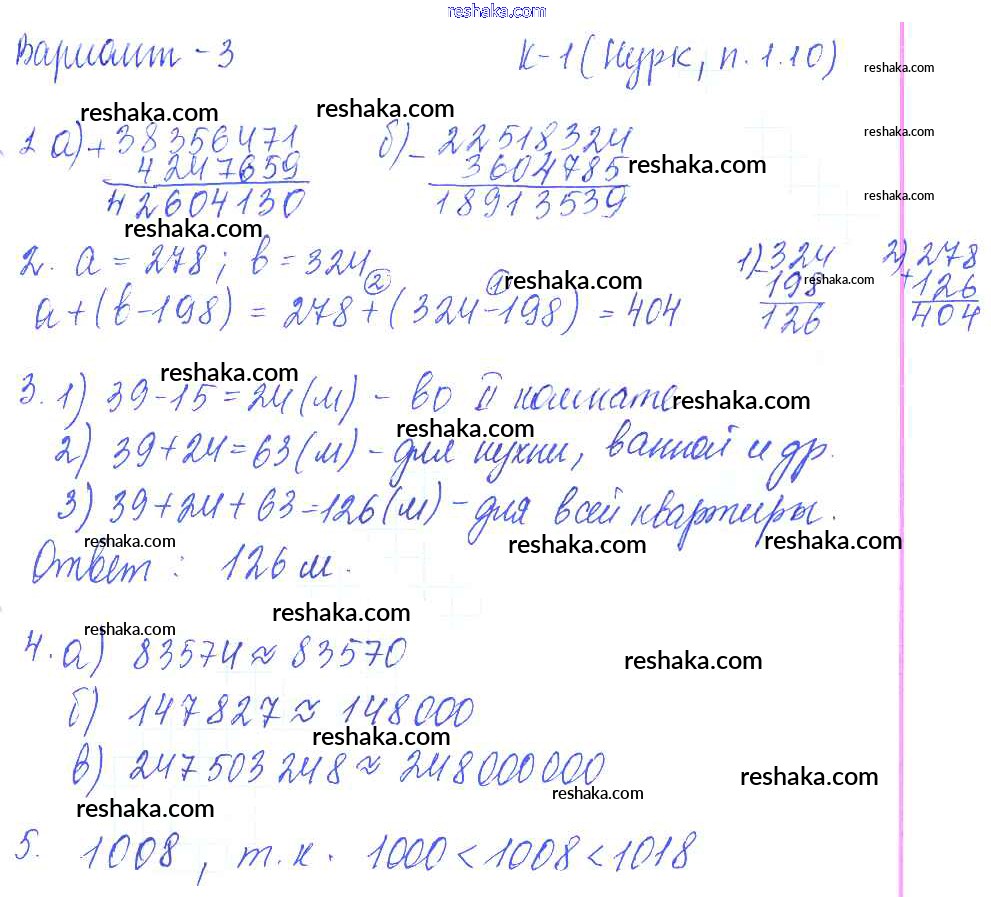 reshaka.com
Вариант - 3 К-1 (Нурк, п. 1.10)
reshaka.com
reshaka.com reshaka.com
1 а) + 38356471 б) - 22518324
reshaka.com
4247659 3604785
reshaka.com
42604130 18913539
reshaka.com
reshaka.com
2. а = 278; в = 324 1) - 324 2) + 278
② ① reshaka.com 198 126
а + (в - 198) = 278 + (324 - 198) = 404 126 404
reshaka.com
reshaka.com
3. 1) 39 - 15 = 24 (м) - во II комнате
reshaka.com
reshaka.com
2) 39 + 24 = 63 (м) - для кухни, ванной и др.
3) 39 + 24 + 63 = 126 (м) - для всей квартиры.
reshaka.com reshaka.com reshaka.com
Ответ: 126 м.
reshaka.com
reshaka.com
4. а) 83574 ≈ 83570
reshaka.com
б) 147827 ≈ 148000
reshaka.com
в) 247503248 ≈ 248000000
reshaka.com
reshaka.com
reshaka.com
5. 1008, т. к. 1000 < 1008 < 1018